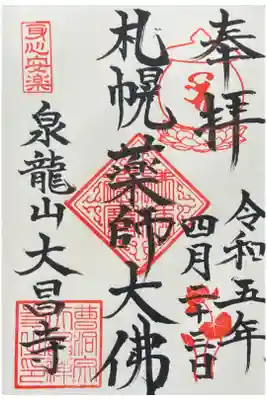 奉拝
令和五年
四月
札幌
薬師大佛
身心安楽
泉龍山 大昌寺
曹洞宗